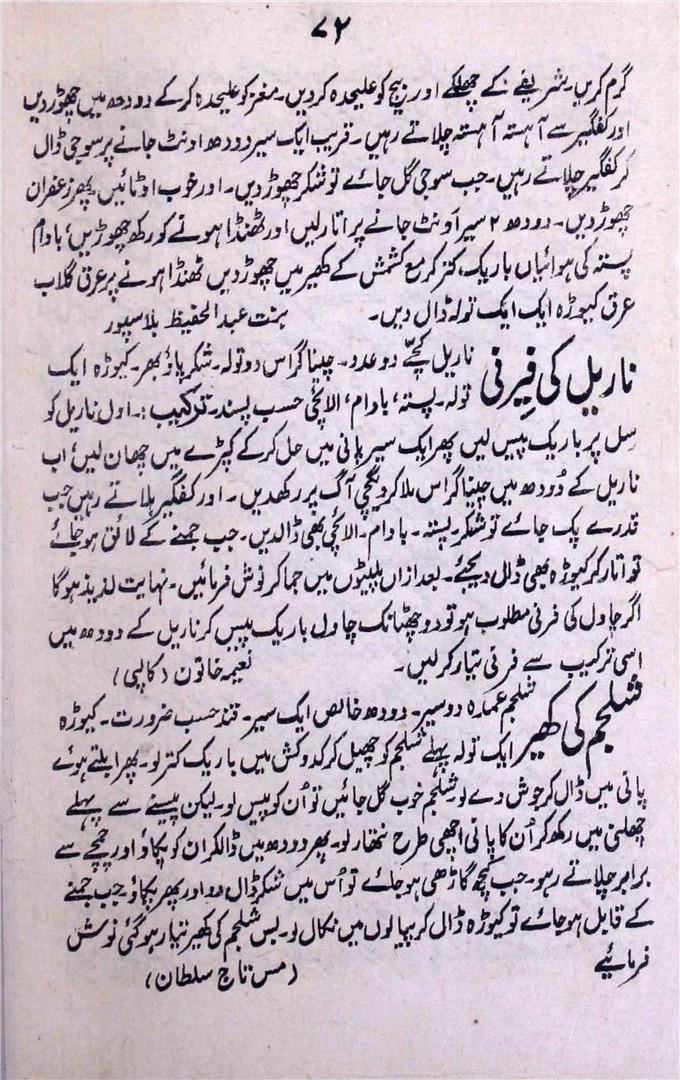 ۷۲
گرم کریں۔ شریفے کے چھلکے اور بیج کو علیحدہ کردیں۔ مغز کو علیحدہ کرکے دودھ میں چھوڑدیں
اور کفگیر سے آہستہ آہستہ چلاتے رہیں۔ قریب ایک سیر دودھ اونٹ جانے پر سوجی ڈال
کر کفگیر چلاتے رہیں۔ جب سوجی گل جائے تو شکر چھوڑ دیں۔ اور خوب اوٹائیں۔ پھر زعفران
چھوڑ دیں۔ دودھ ۲ سیر اونٹ جانے پر اتارلیں اور ٹھنڈا ہونے کو رکھ چھوڑیں، بادام
پستہ کی ہوائیاں باریک کتر کر مع کشمش کے کھیر میں چھوڑ دیں ٹھنڈا ہونے پر عرق گلاب
عرق کیوڑہ ایک ایک تولہ ڈال دیں۔ بنت عبدالحفیظ بلاسپور
ناریل کی فیرنی ناریل کچے دو عدد۔ چینا گراس دو تولہ۔ شکر پاؤ بھر۔ کیوڑہ ایک
تولہ۔ پستہ، بادام، الائچی حسب پسند۔ ترکیب:۔ اول ناریل کو
سل پر باریک پیس لیں پھر ایک سیر پانی میں حل کرکے کپڑے میں چھان لیں، اب
ناریل کے دودھ میں چینا گراس ملا کر دیگچی آگ پر رکھدیں۔ اور کفگیر ہلاتے رہیں جب
قدرے پک جائے تو شکر۔ پستہ۔ بادام۔ الائچی بھی ڈالدیں۔ جب جمنے کے لائق ہو جائے
تو اتار کر کیوڑہ بھی ڈال دیجئے۔ بعد ازاں پلیٹوں میں جما کر نوش فرمائیں۔ نہایت لذیذ ہوگا
اگر چاول کی فرنی مطلوب ہو تو دو چھٹانک چاول باریک پیس کر ناریل کے دودھ میں
اسی ترکیب سے فرنی تیار کرلیں۔ نعیمہ خاتون (کالپی)
شلجم کی کھیر شلجم عمدہ دو سیر۔ دودھ خالص ایک سیر۔ قند حسب ضرورت۔ کیوڑہ
ایک تولہ پہلے شلجم کو چھیل کر کدوکش میں باریک کتر لو۔ پھر ابلتے ہوئے
پانی میں ڈال کر جوش دے لو۔ شلجم خوب گل جائیں تو اُن کو پیس لو۔ لیکن پیسنے سے پہلے
چھلنی میں رکھ کر اُن کا پانی اچھی طرح نتھار لو۔ پھر دودھ میں ڈالکر ان کو پکاؤ اور چمچے سے
برابر چلاتے رہو۔ جب کچھ گاڑھی ہو جائے تو اُس میں شکر ڈال دو اور پھر پکاؤ۔ جب جمنے
کے قابل ہو جائے تو کیوڑہ ڈال کر پیالوں میں نکال لو۔ بس شلجم کی کھیر تیار ہو گئی نوش
فرمائیے (مس تاج سلطان)